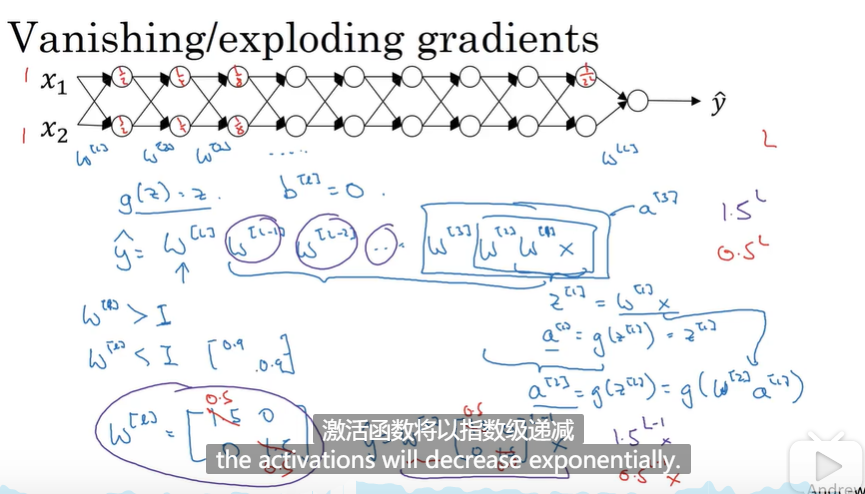 Vanishing/exploding gradients
1 x₁ 1/2 1/4 1/8 1/2^L
1 x₂ 1/2 1/4 1/8 ŷ
w^[1] w^[2] w^[3] ..... w^[L] L
g(z) = z. b^[l] = 0.
ŷ = w^[L] w^[L-1] w^[L-2] ... w^[3] w^[2] w^[1] x a^[3] 1.5^L
0.5^L
z^[1] = w^[1] x
w^[l] > I a^[1] = g(z^[1]) = z^[1]
w^[l] < I [0.9 0.9]
a^[2] = g(z^[2]) = g(w^[2] a^[1])
w^[l] = [1.5 0 0 1.5] 0.5 0.5
1.5^L-1 x
0.5 x
激活函数将以指数级递减
the activations will decrease exponentially.
Andrew